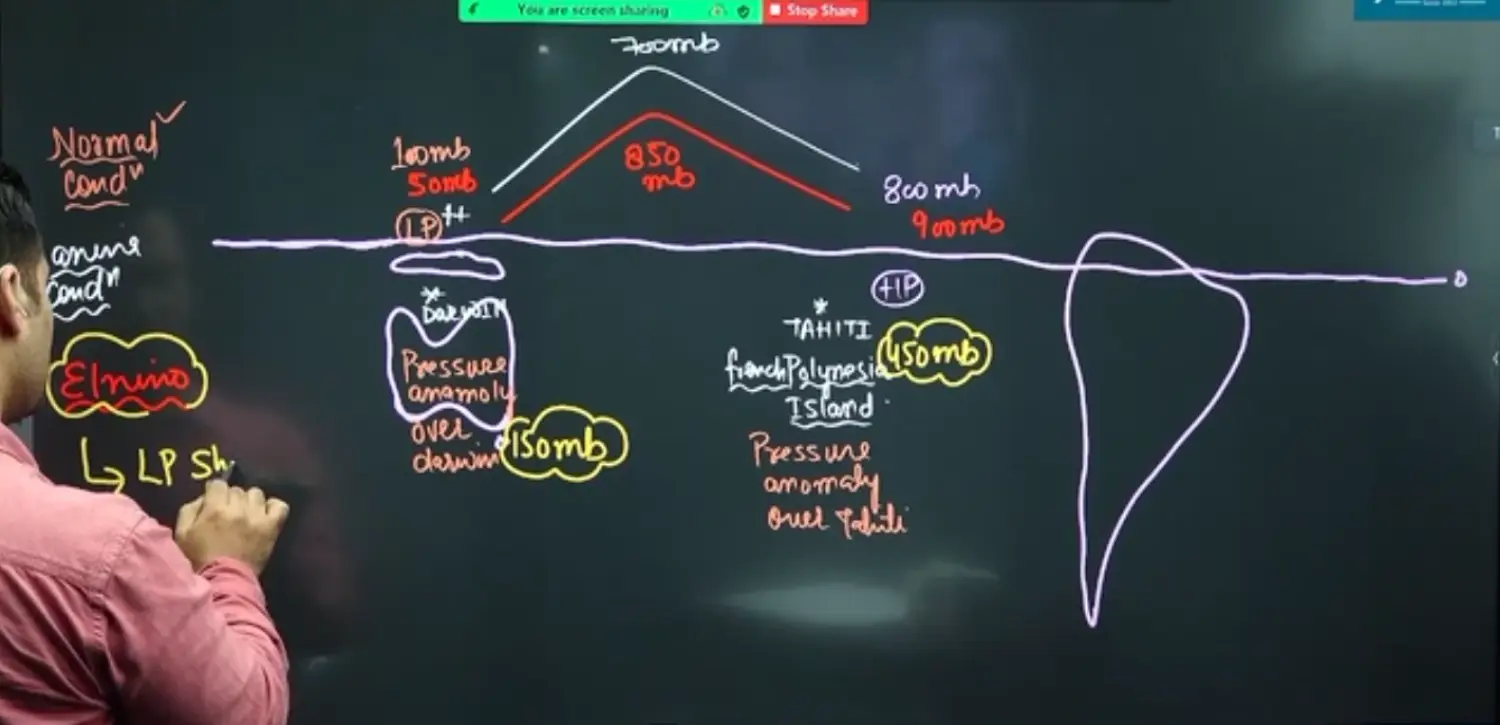 You are screen sharing
Stop Share
700mb
Normal
Condⁿ
100mb
50mb
850
mb
800 mb
900mb
LP ++
anine
Condⁿ
HP
0
Darwin
TAHITI
450mb
french Polynesia
Island
Elnino
Pressure
anamoly
over
darwin
150mb
LP Sh
Pressure
anomaly
over Tahiti